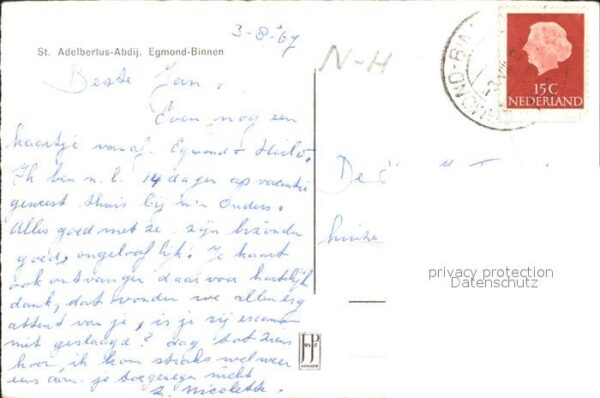 3-8-'67
St. Adelbertus-Abdij, Egmond-Binnen
N-H
Beste Jan,
Even nog een
kaartje vanaf Egmond + Heilo.
Ik ben n.l. 14 dagen op vacantie
geweest thuis bij m'n Ouders.
Alles goed met ze, zijn bizonder
goed, ongelooflijk! Je kaart
ook ontvangen daarvoor hartelijk
dank, dat vonden we allen erg
attent van je, is je rij examen
mit geslaagd? dag tot ziens
hoor, ik kom straks wel weer
eens aan. je toegenegen nicht
Z. Nicolette.
15 C
NEDERLAND
EGMOND-BINNEN
De
huize
privacy protection
Datenschutz